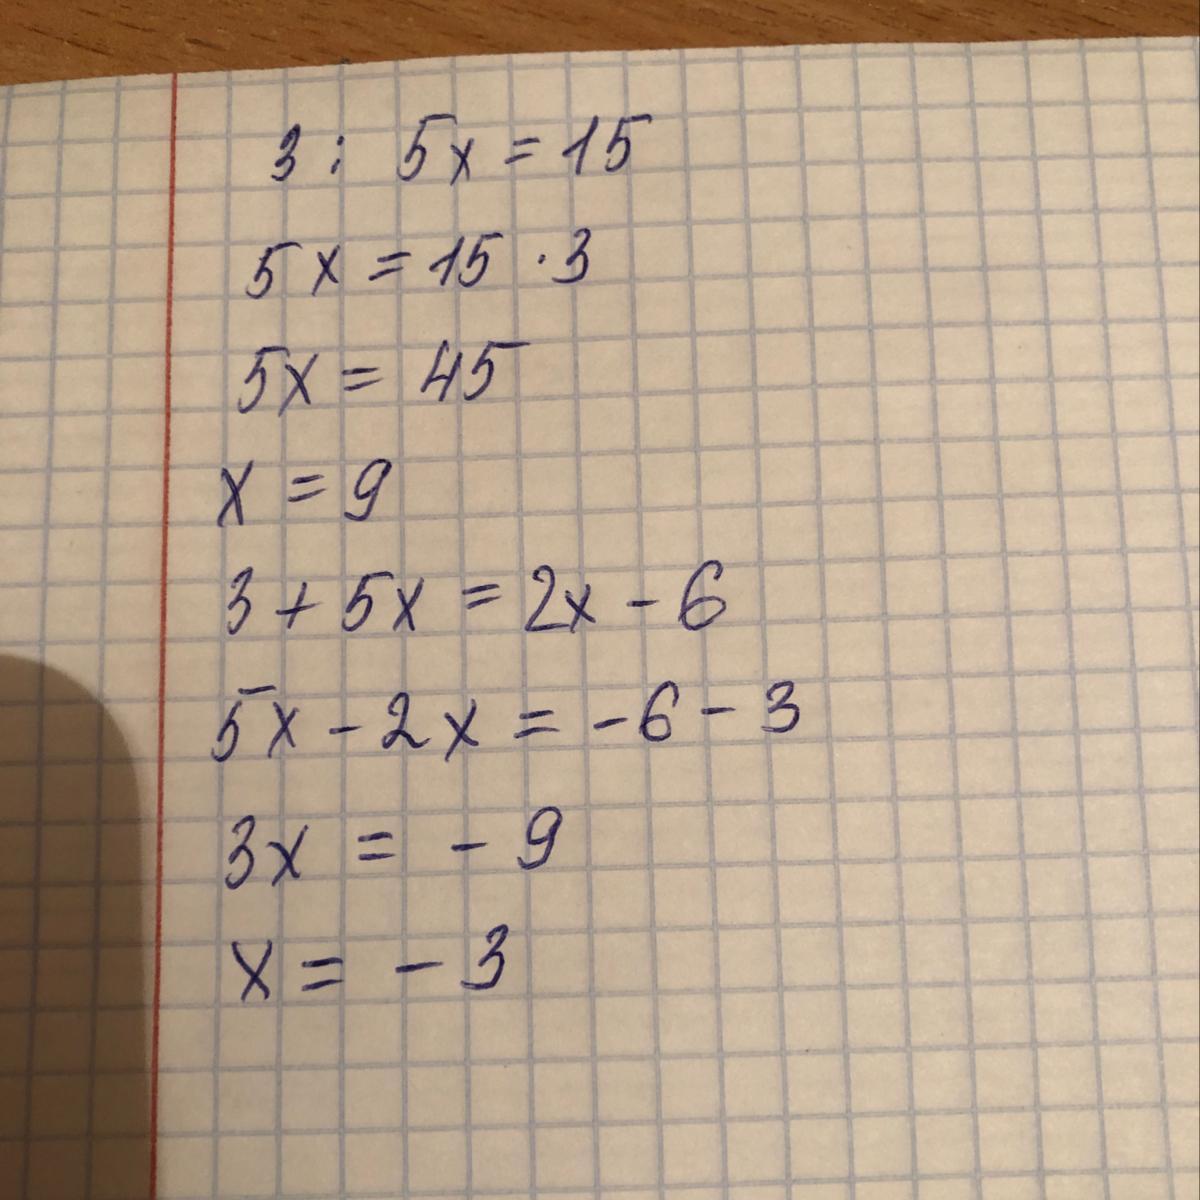 3 : 5x = 15
5x = 15 · 3
5x = 45
x = 9
3 + 5x = 2x - 6
5x - 2x = - 6 - 3
3x = - 9
x = - 3